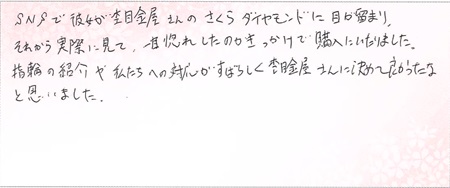 SNSで彼女が杢目金屋さんのさくらダイヤモンドに目が留まり、
それから実際に見て、一目惚れしたのがきっかけで購入にいたりました。
指輪の紹介や私たちへの対応がすばらしく杢目金屋さんに決めて良かったな
と思いました。